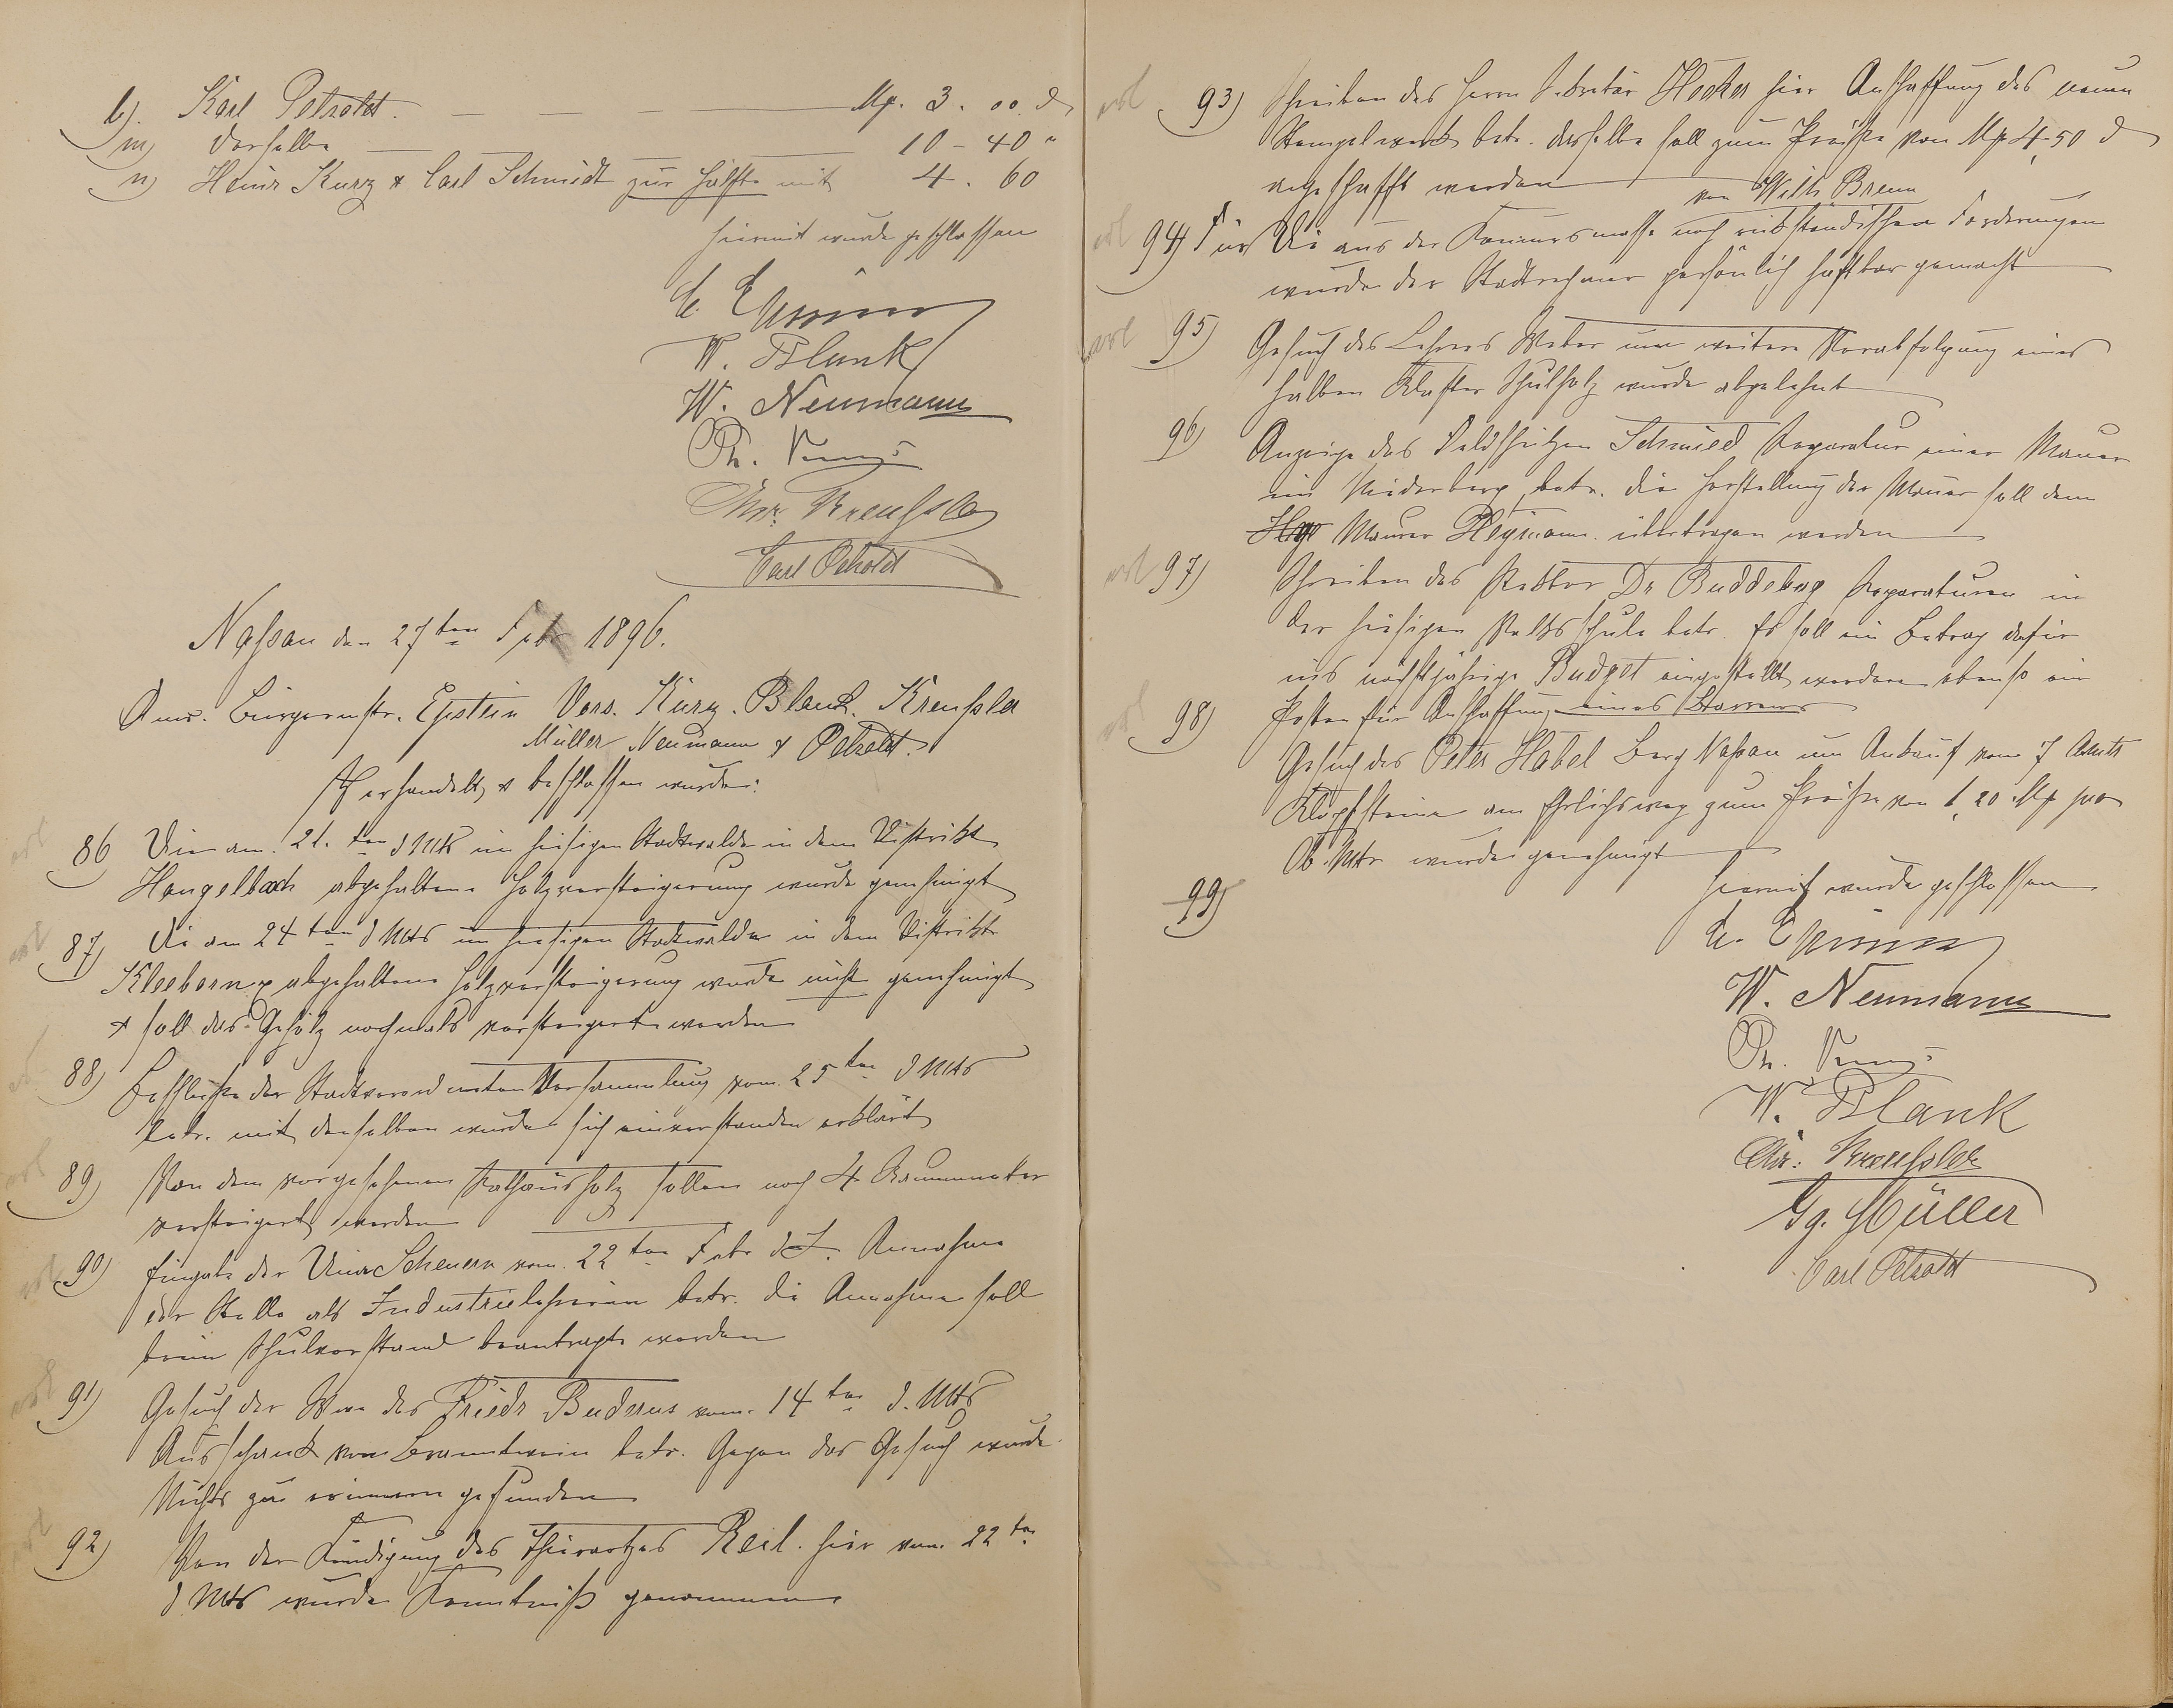 l). Karl Petzoldt. — — — Mk. 3. 00. d
m) derselbe — — 10 – 40 "
n) Heinr Kurz & Carl Schmidt zur Hälfte mit 4. 60
hiermit wurde geschlossen
W. Blank
W. Neumann
Ph. Kurz
Chr. Kreußler
Carl Petzoldt
Naßau den 27ten Febr 1896.
Anw. Bürgermstr. Epstein Vors. Kurz. Blank. Kreußler
Müller Neumann & Petzoldt.
Verhandelt & beschlossen wurde:
erl
86 Die am 21. ten d Mts im hiesigen Stadtwalde in dem Distrikt
Hengelbach abgehaltene Holzversteigerung wurde genehmigt
erl
87) Die am 24ten d Mts im hiesigen Stadtwalde in dem Distrikte
Kleeborn abgehaltene Holzversteigerung wurde nicht genehmigt
& soll das Gehölz nochmals versteigert werden
erl
88) Beschlüße der Stadtverordneten Versammlung vom 25ten d Mts
betr. mit denselben wurde sich einverstanden erklärt
erl
89) Von dem vorgesehenen Rathausholz sollen noch 4 Raummeter
versteigert werden
erl
90) Eingabe der Lina Scheuern vom 22ten Febr d J. Annahme
der Stelle als Industrielehrerin betr. die Annahme soll
beim Schulvorstand beantragt werden
erl
91) Gesuch der Wwe des Friedr Buderus vom 14ten d. Mts
Ausschank von Branntwein betr. Gegen das Gesuch wurde
Nichts zu erinnern gefunden
erl
92) Von der Kündigung des Thierarztes Reil. hier vom 22ten
d Mts wurde Kenntniß genommen
erl
93) Schreiben des Herrn Sekretär Hecker hier Anschaffung des neuen
Stempelwerk betr. dasselbe soll zum Preiße von Mk 4,50 d
angeschafft werden
von Wilh Bremm
erl
94) Für die aus der Konkursmasse noch rückständischen Forderungen
wurde der Stadtrechner persönlich haftbar gemacht
erl
95) Gesuch des Lehrers Weber um weitere Verabfolgung eines
halben Klafter Schulholz wurde abgelehnt
96) Anzeige des Feldschützen Schmied Reparatur einer Mauer
im Niederberg betr. die Herstellung der Mauer soll dem
Maurer Heymann übertragen werden
erl
97) Schreiben des Rektor Dr Buddeberg Reparaturen in
der hiesigen Volksschule betr. Es soll ein Betrag dafür
ins nächstjährige Budget eingestellt werden ebenso ein
Posten für Anschaffung eines Barrens
erl
98) Gesuch des Peter Habel Berg Naßau um Ankauf von 7 Cbmtr
Klopfsteine am Ehrlichsweg zum Preiße von 1,20 Mk pro
Cb. Mtr wurde genehmigt
99)
hiermit wurde geschlossen
W. Neumann
Ph. Kurz
W. Blank
Chr. Kreußler
Gg. Müller
Carl Petzoldt